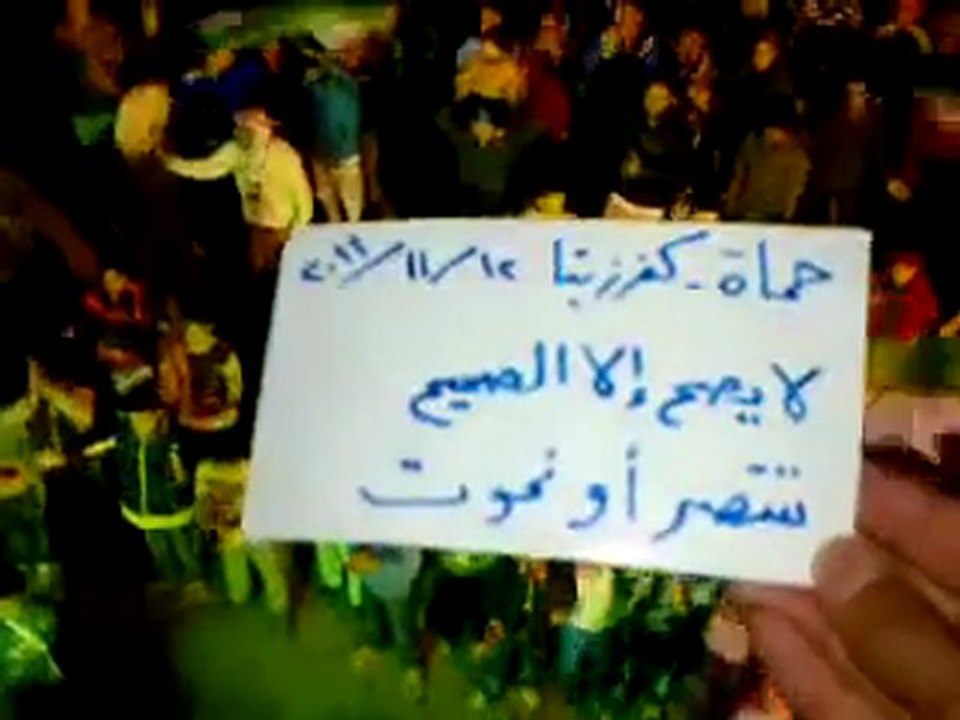 حماة - كفرزيتا ١٢/١١/٢٠١١
لا يصح إلا الصحيح
ننتصر أو نموت